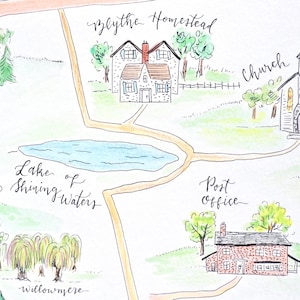 Blythe Homestead
Church
Lake of
Shining
Waters
Post
Office
Willowmere